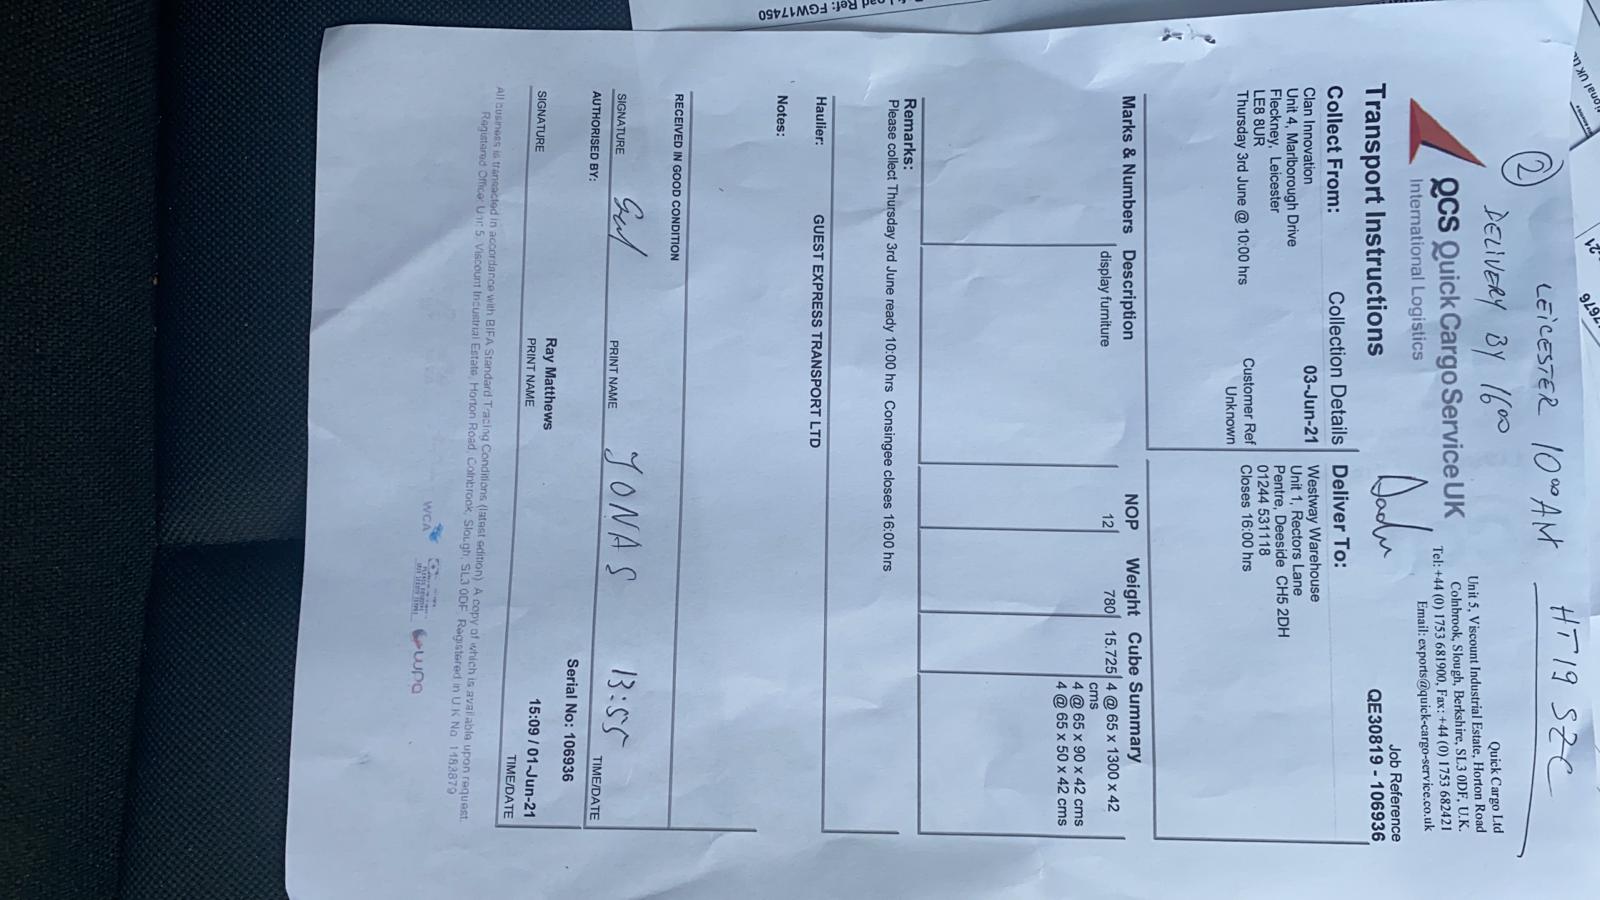 ② LEICESTER 10⁰⁰ AM HT19 SZC
DELIVERY BY 16⁰⁰
QCS QuickCargoServiceUK
International Logistics
Quick Cargo Ltd
Unit 5, Viscount Industrial Estate, Horton Road
Colnbrook, Slough, Berkshire, SL3 0DF, U.K.
Tel: +44 (0) 1753 681900, Fax: +44 (0) 1753 682421
Email: exports@quick-cargo-service.co.uk
Transport Instructions
Job Reference
QE30819 - 106936
Collect From: Collection Details
Clan Innovation 03-Jun-21
Unit 4, Marlborough Drive
Fleckney, Leicester
LE8 8UR Customer Ref
Thursday 3rd June @ 10:00 hrs Unknown
Deliver To:
Westway Warehouse
Unit 1, Rectors Lane
Pentre, Deeside CH5 2DH
01244 531118
Closes 16:00 hrs
Marks & Numbers Description NOP Weight Cube Summary
display furniture 12 780 15.725 4 @ 65 x 1300 x 42
cms
4 @ 65 x 90 x 42 cms
4 @ 65 x 50 x 42 cms
Remarks:
Please collect Thursday 3rd June ready 10:00 hrs Consingee closes 16:00 hrs
Haulier: GUEST EXPRESS TRANSPORT LTD
Notes:
RECEIVED IN GOOD CONDITION
JONAS 13:55
SIGNATURE PRINT NAME TIME/DATE
AUTHORISED BY: Serial No: 106936
Ray Matthews 15:09 / 01-Jun-21
SIGNATURE PRINT NAME TIME/DATE
All business is transacted in accordance with BIFA Standard Trading Conditions (latest edition) A copy of which is available upon request.
Registered Office: Unit 5, Viscount Industrial Estate, Horton Road, Colnbrook, Slough, SL3 0DF. Registered in U K No.
WCA
wpa
Ref: FGW17450